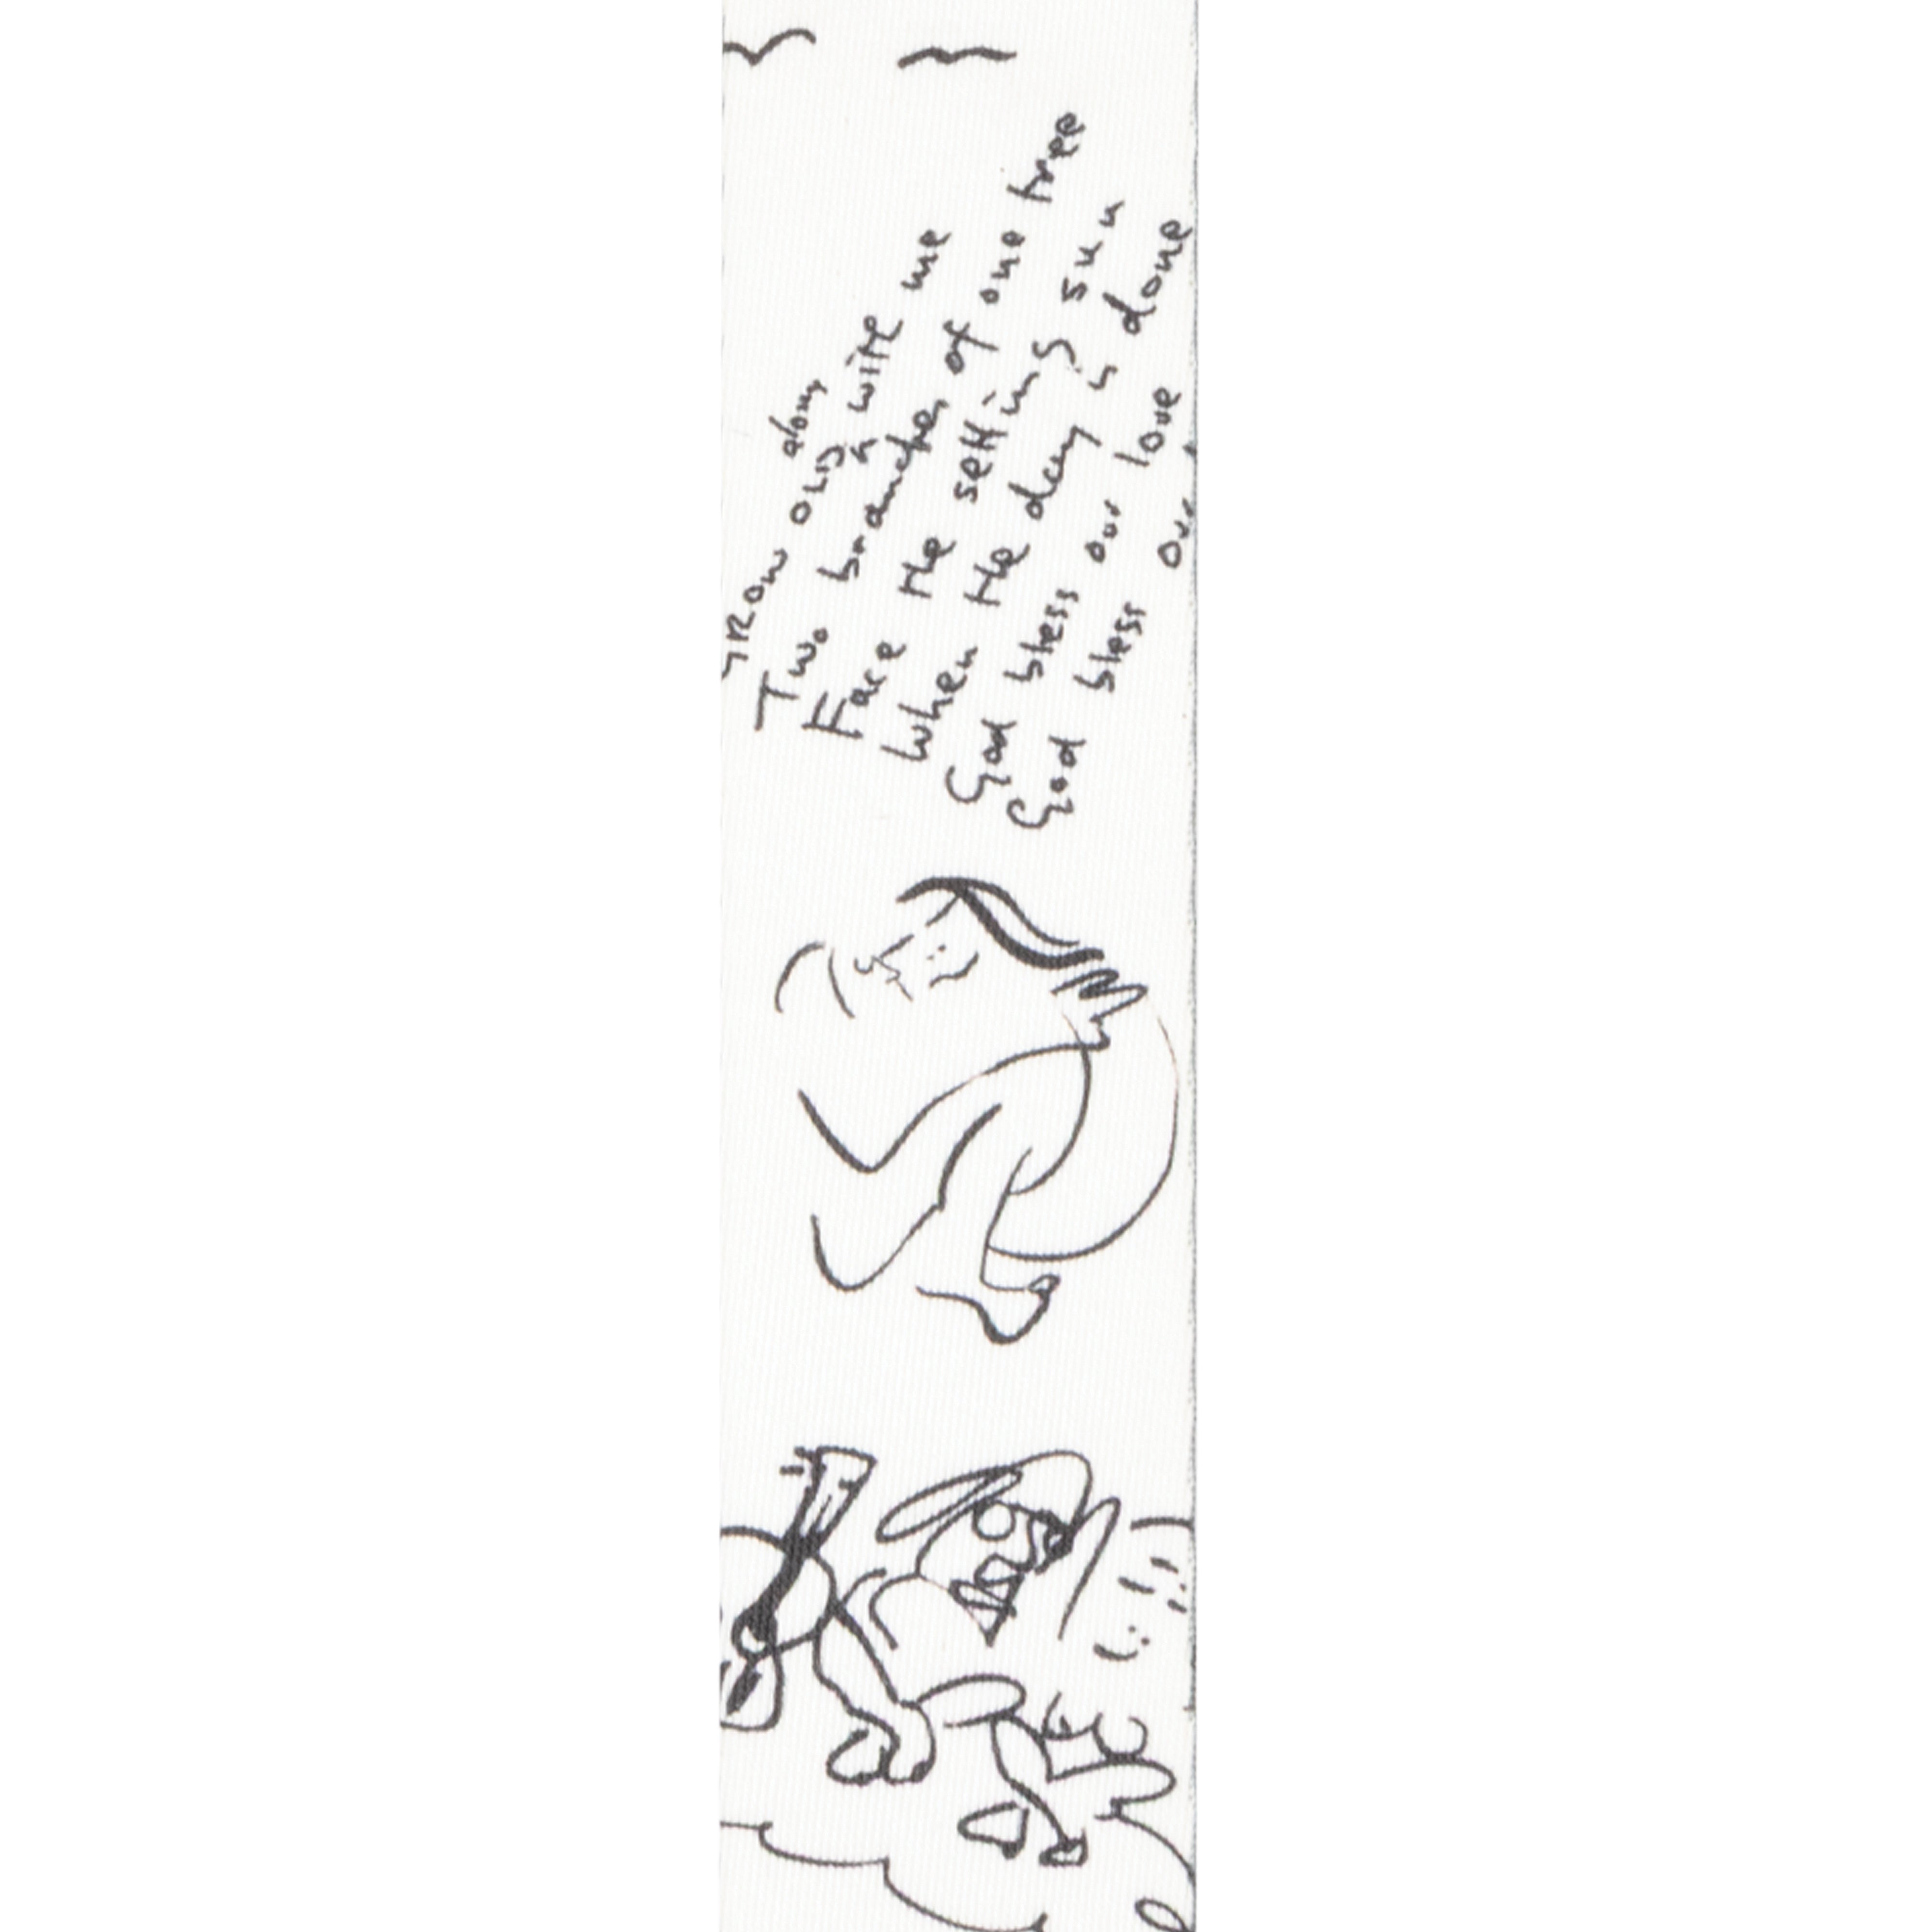 GROW OLD along with me
Two branches of one tree
Face the setting sun
When the day is done
God bless our love
God bless our